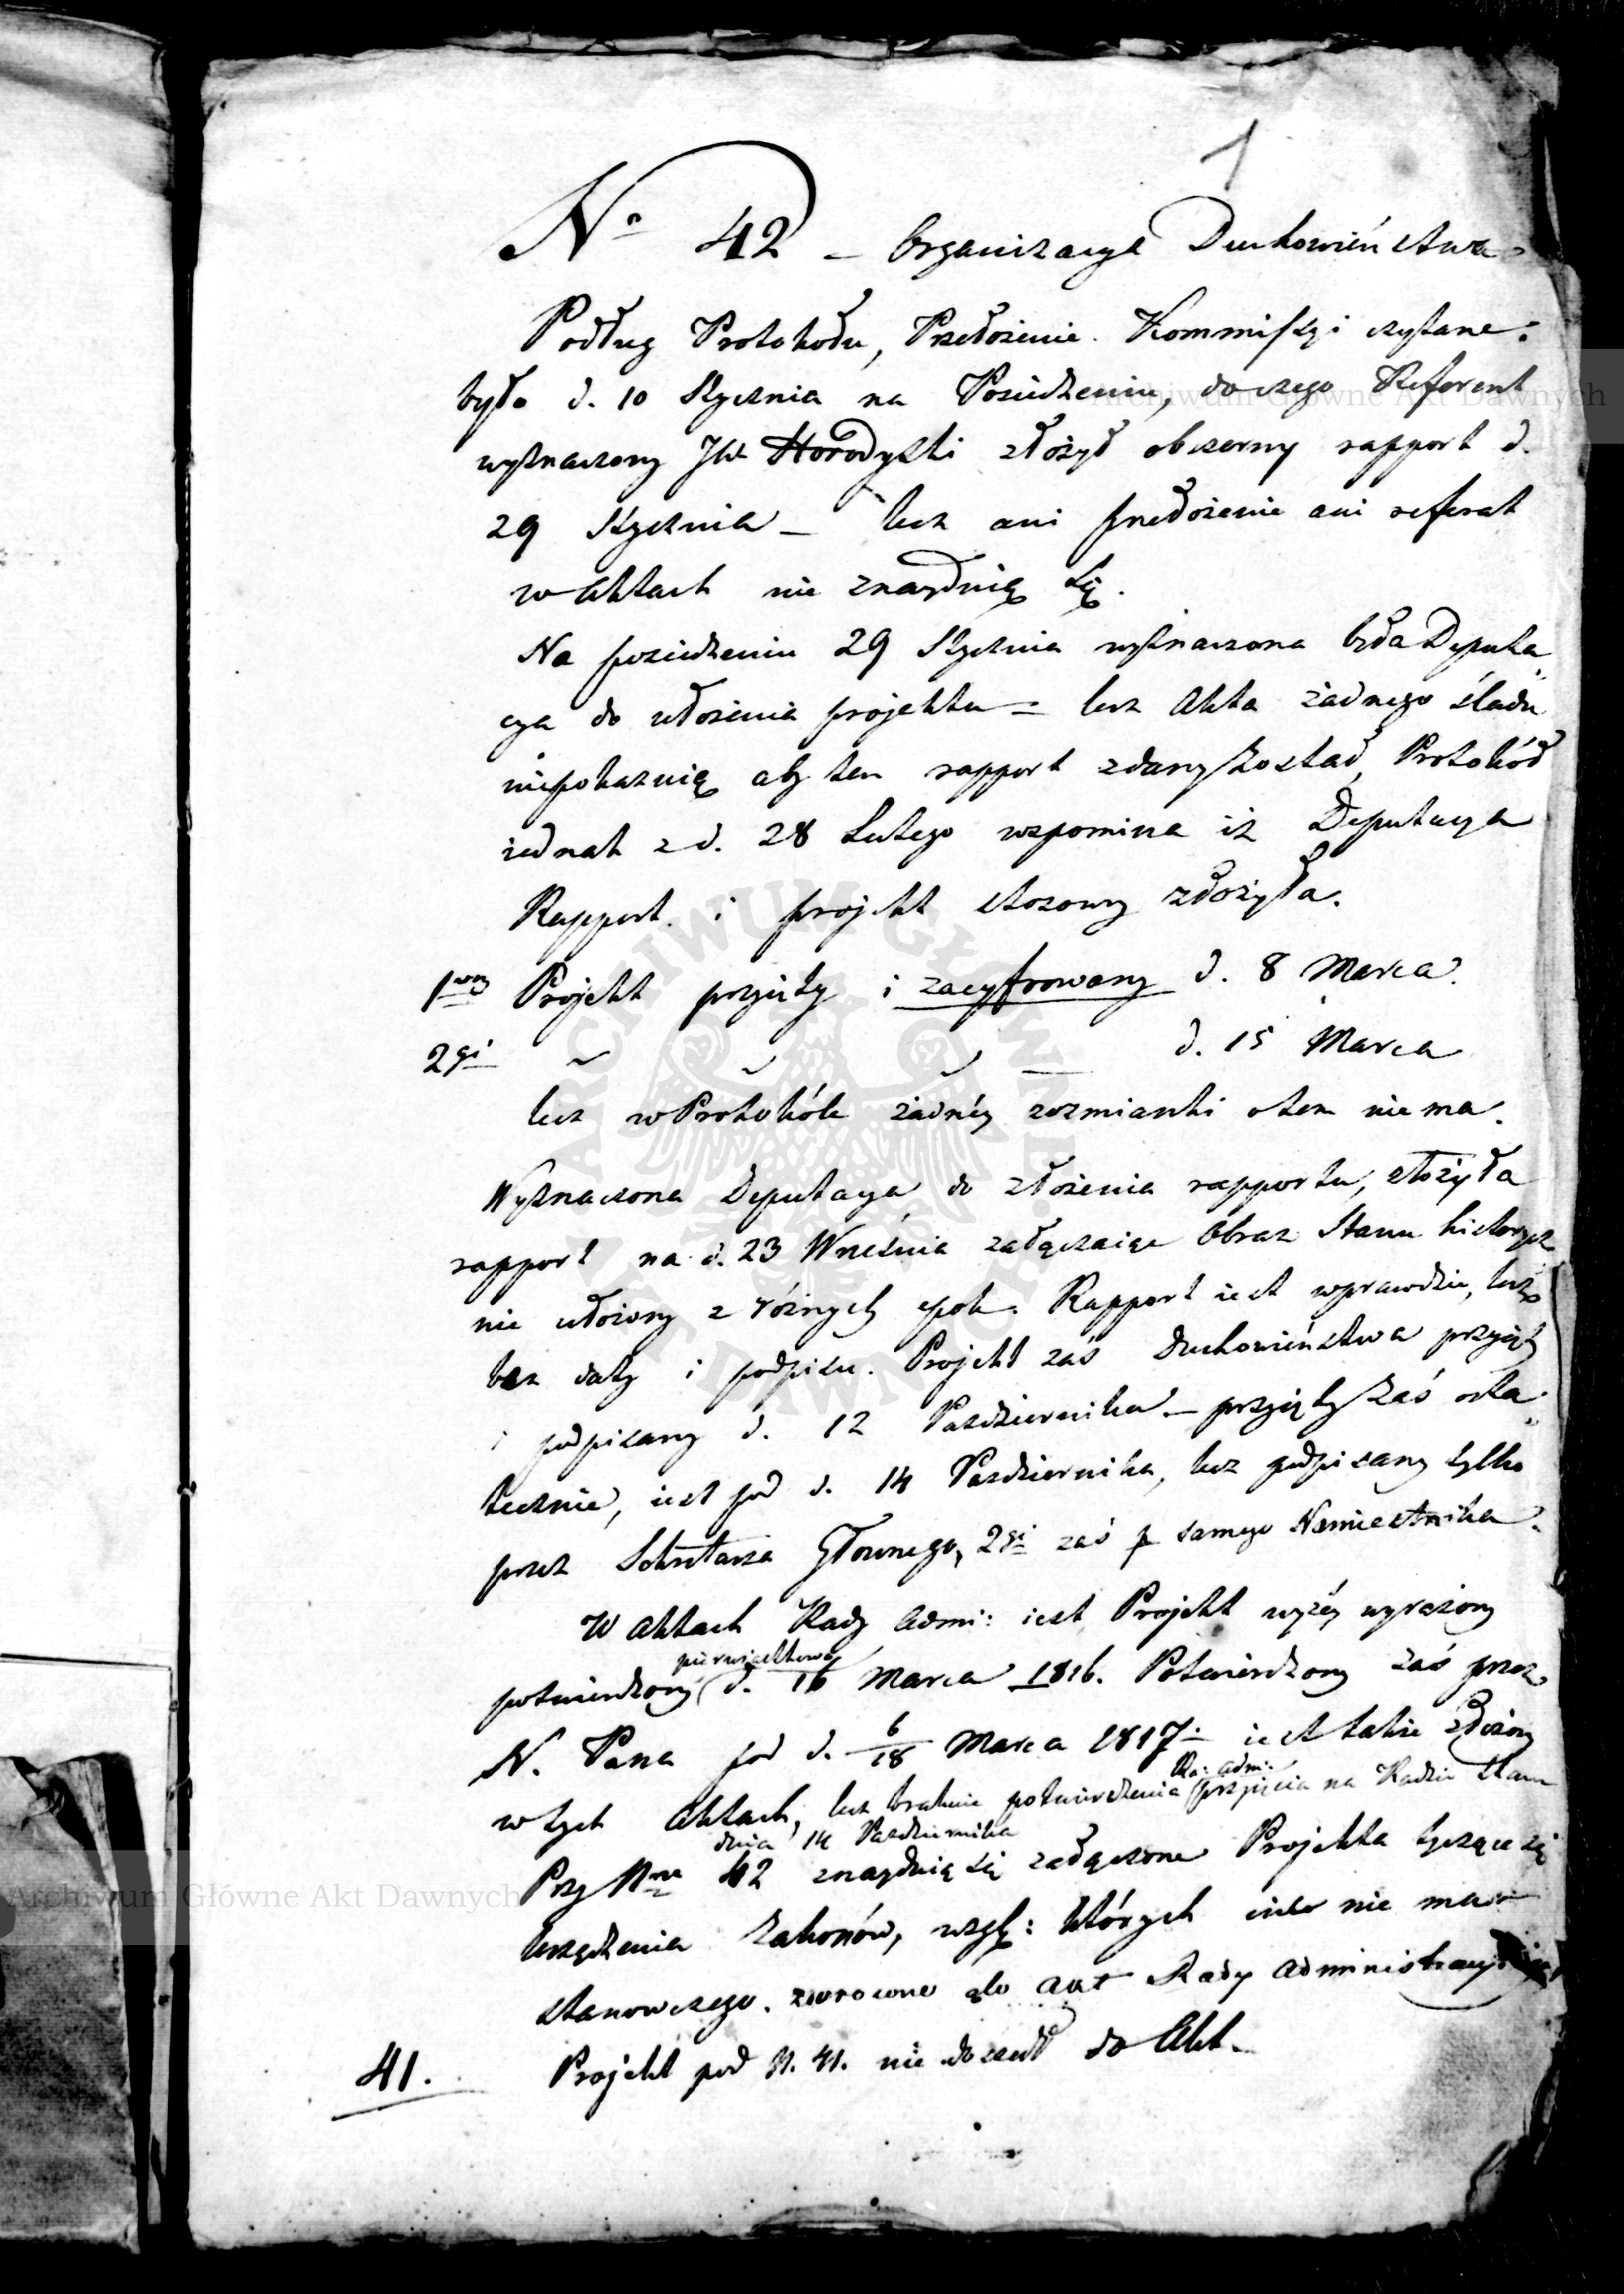 1
No 42 – Organizacya Duchowieństwa
Podług Protokołu, Przełożenie Kommissyi czytane
było d. 10 Stycznia na Posiedzeniu, do czego Referent
wyznaczony JW Horodyski złożył obszerny rapport d.
29 Stycznia – lecz ani przełożenie ani referat
w Aktach nie znayduią się.
Na posiedzeniu 29 Stycznia wyznaczona była Deputa„
cya do ułożenia projektu – lecz Akta żadnego śladu
niepokazuią aby ten rapport zdany został, Protokół
iednak z d. 28 Lutego wspomina iż Deputacya
Rapport i projekt stosowny złożyła.
1wszy Projekt przyięty i zacyfrowany d. 8 Marca.
2gi ~ ~ ~ — d. 15 Marca
lecz w Protokóle żadnéy wzmianki o tem nie ma.
Wyznaczona Deputacya do złożenia rapportu, złożyła
rapport na d. 23 Września załączaiąc Obraz Stanu historycz„
nie ułożony z różnych epok. Rapport iest wprawdzie, lecz
bez daty i podpisu. Projekt zaś Duchowieństwa przyięty
i podpisany d. 12 Października – przyięty zaś osta„
tecznie, iest pod d. 14 Października, lecz podpisany tylko
przez Sekretarza Głównego, 2gi zaś p samego Namiestnika.
W Aktach Rady Admi: iest Projekt wyżéy wyrażony
pierwiastkowo
potwierdzony d. 16 Marca 1816. Potwierdzony zaś przez
N. Pana pod d. 6/18 Marca 1817 – iest także złożony
Ra: Adm:
w tych Aktach, lecz braknie potwierdzenia przyięcia na Radzie Stanu
dnia 14 Października
Przy Nrze 42 znayduią się załączone Projekta tyczące się
Urządzenia Zakonów, wzgl: których nic nie ma
stanowczego. zwrocone do akt Rady Administracyjnej
41. Projekt pod N. 41. nie doszedł do Akt.
Archiwum Główne Akt Dawnych
Archiwum Główne Akt Dawnych
ARCHIWUM GŁÓWNE AKT DAWNYCH